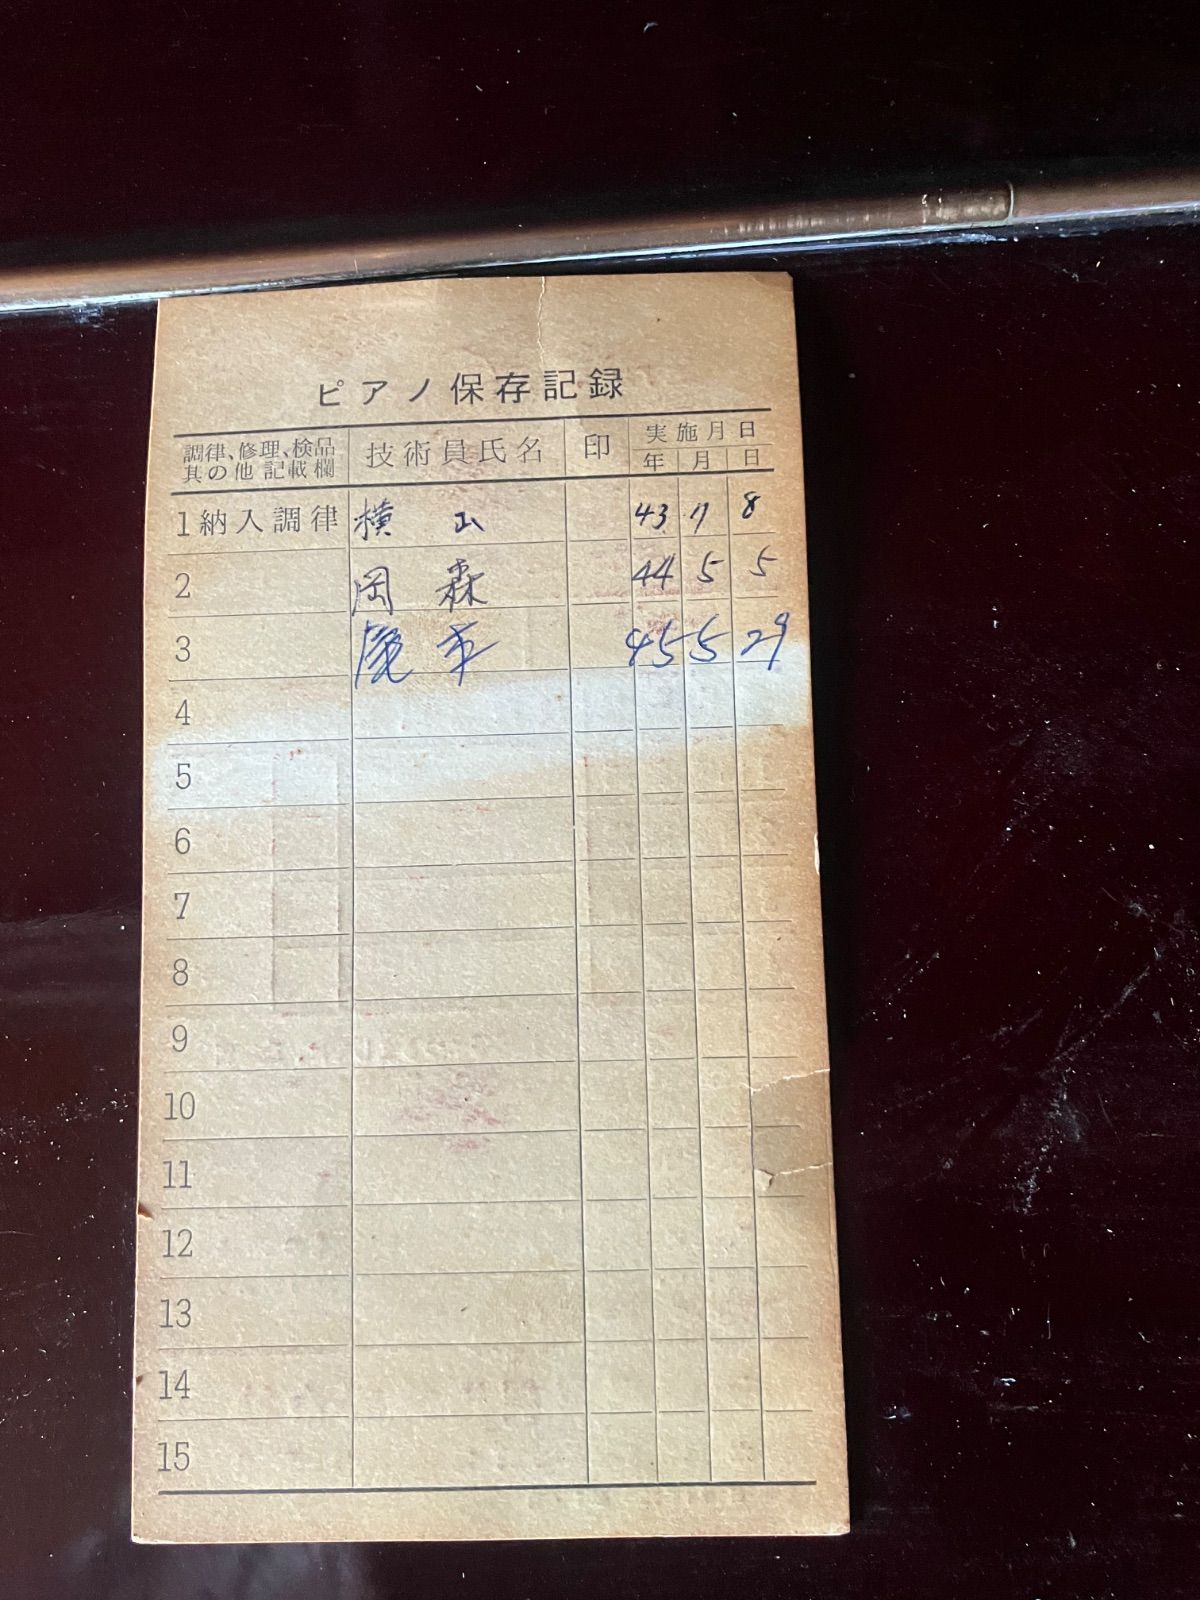 ピアノ保存記録
調律、修理、検品
其の他記載欄
技術員氏名
印
実施月日
年 月 日
1 納入調律 横山 43 8
2 岡森 44 5 5
3 45 5 29
4
5
6
7
8
9
10
11
12
13
14
15